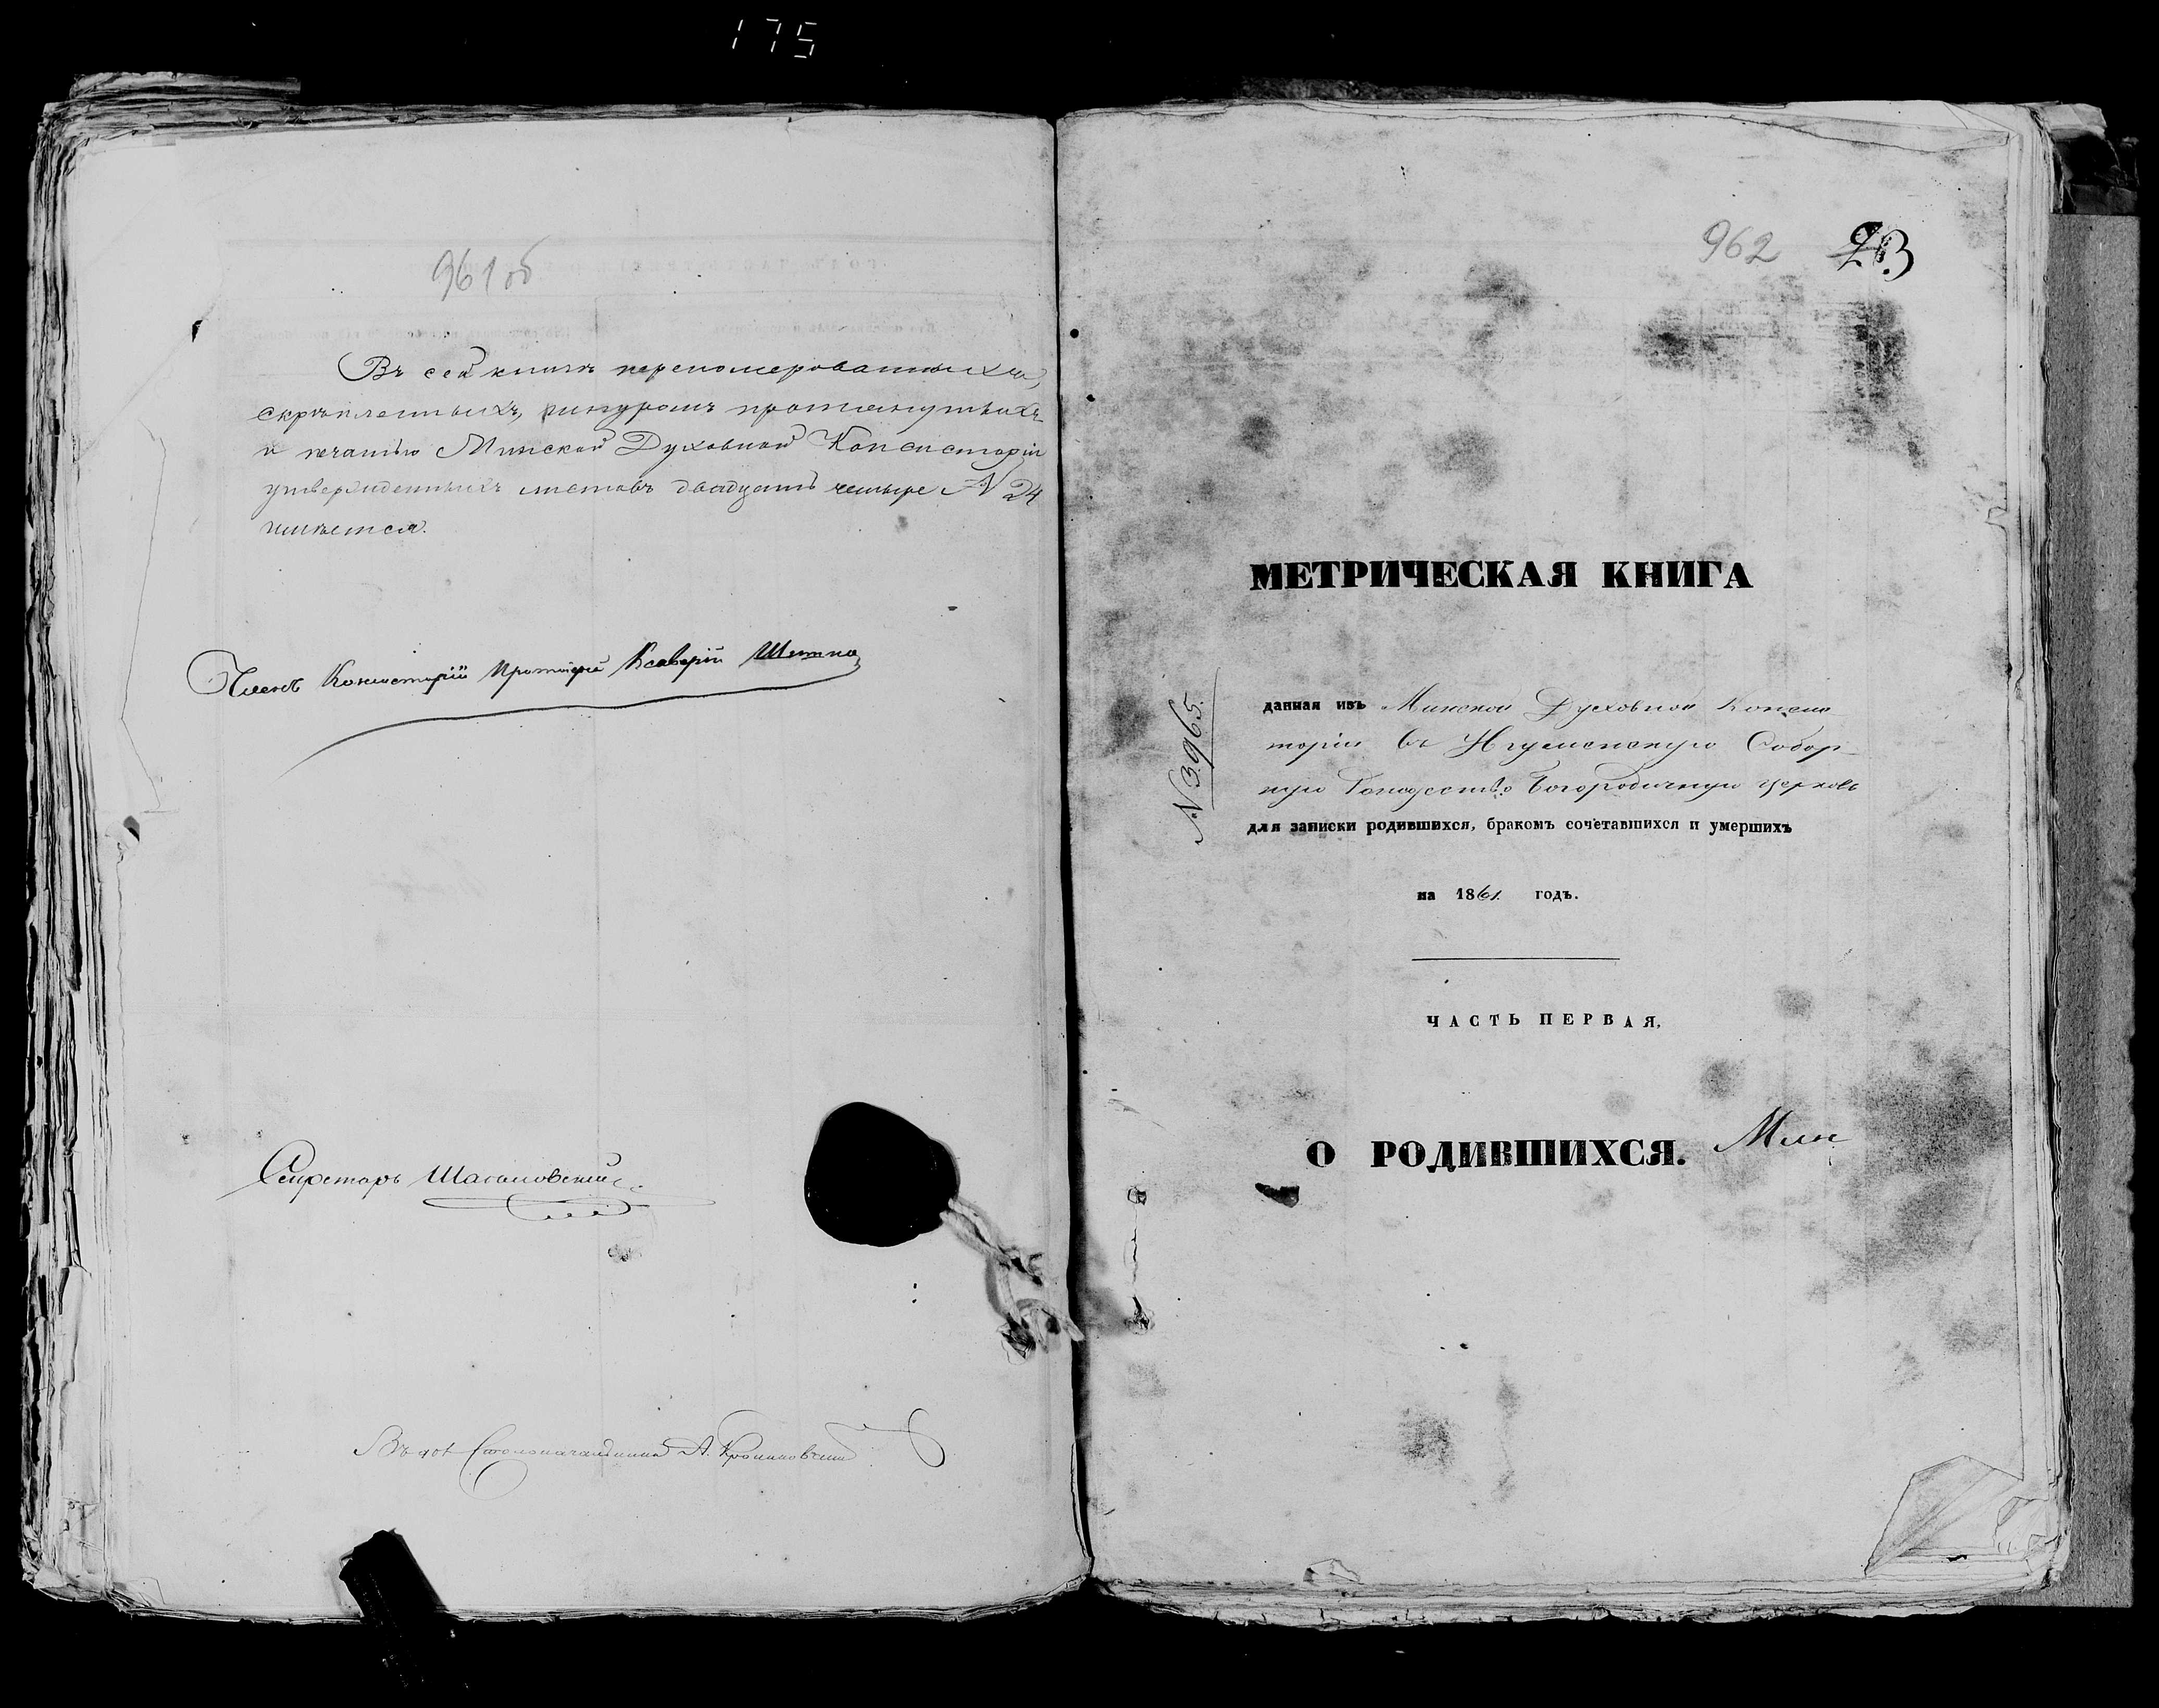 175
961об
Въ сей книгѣ перенумерованныхъ,
скрѣпленныхъ, шнуромъ протянутыхъ
и печатью Минской Духовной Консисторіи
утвержденныхъ листовъ двадцать четыре N 24
имѣется.
Членъ Консисторіи Протоіерей Ксаверій
Секретарь
Столоначальника А.
962
МЕТРИЧЕСКАЯ КНИГА
N 3965.
данная изъ Минской Духовной Консис
торіи въ Игуменскую Собор-
ную Богородичную церковь
для записки родившихся, бракомъ сочетавшихся и умершихъ
на 1861. годъ.
ЧАСТЬ ПЕРВАЯ,
О РОДИВШИХСЯ.
Мин